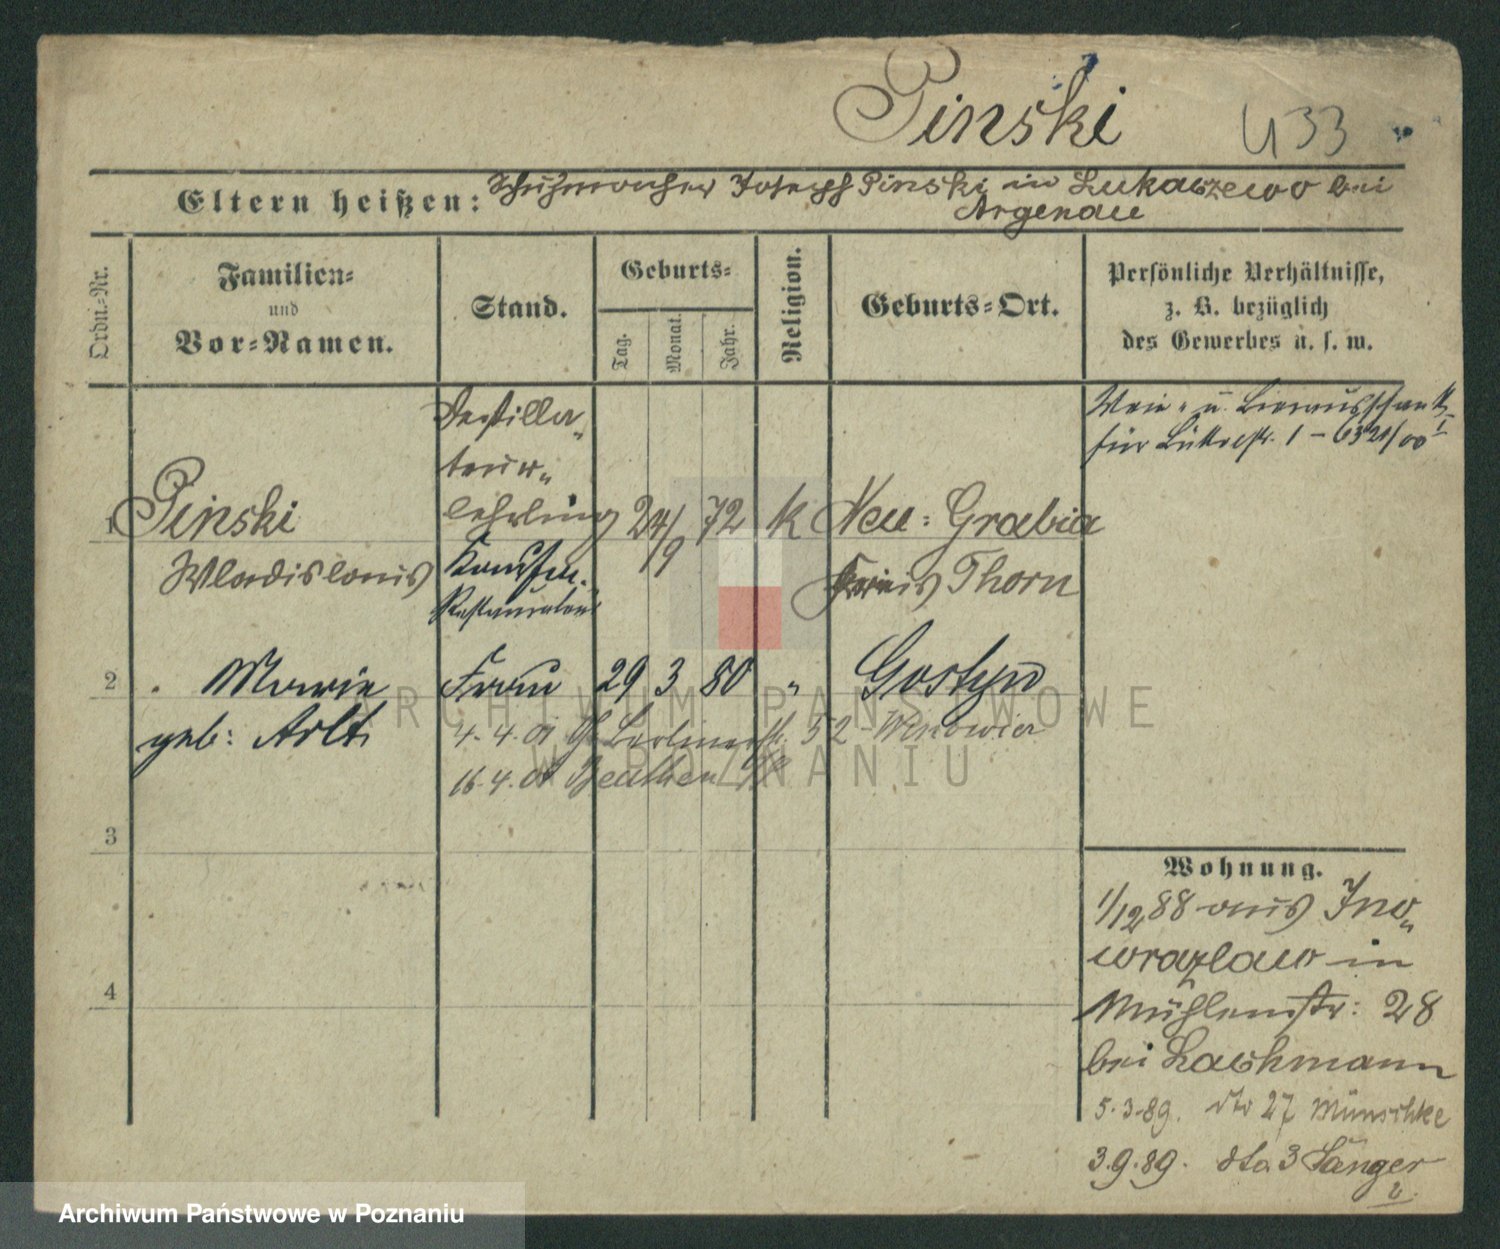 Pinski
433
Eltern heißen: Schuhmacher Joseph Pinski in Lukaszewo bei
Argenau
Ordn.-Nr.
Familien-
und
Vor-Namen.
Stand.
Geburts-
Tag.
Monat.
Jahr.
Religion.
Geburts-Ort.
Persönliche Verhältnisse,
z. B. bezüglich
des Gewerbes u. s. w.
Wein- u. Bierausschank
für 1 - 6321/00
Destilla-
teur-
1 Pinski lehrling 24/9 72 k Neu-Grabia
Wladislaus Kaufm. Kreis Thorn
Restaurateur
2 Marie Frau 29 3 80 " Gostyn
geb: Arlt
4.4.01 Berlinerstr. 52
16.4.01 Beuthen
3
4
Wohnung.
1/12 88 aus Ino-
wrazlaw in
Mühlenstr: 28
bei Lachmann
5.3.89. dto 27 Münschke
3.9.89. dto. 3 Sänger
ARCHIWUM PAŃSTWOWE
W POZNANIU
Archiwum Państwowe w Poznaniu